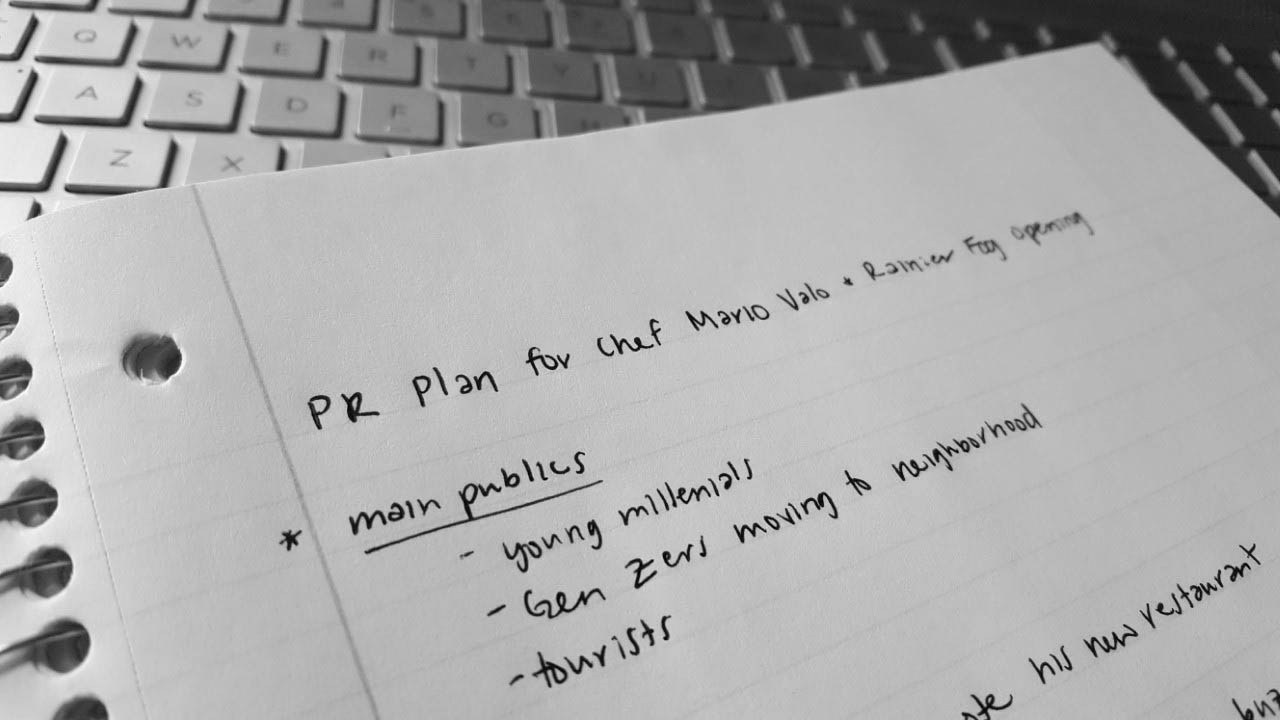 Q W E R T Y U
A S D F G H
Z X
PR Plan for Chef Mario Valo * Rainier Fog opening
* main publics
- young millenials
- Gen Zers moving to neighborhood
- tourists
his new restaurant